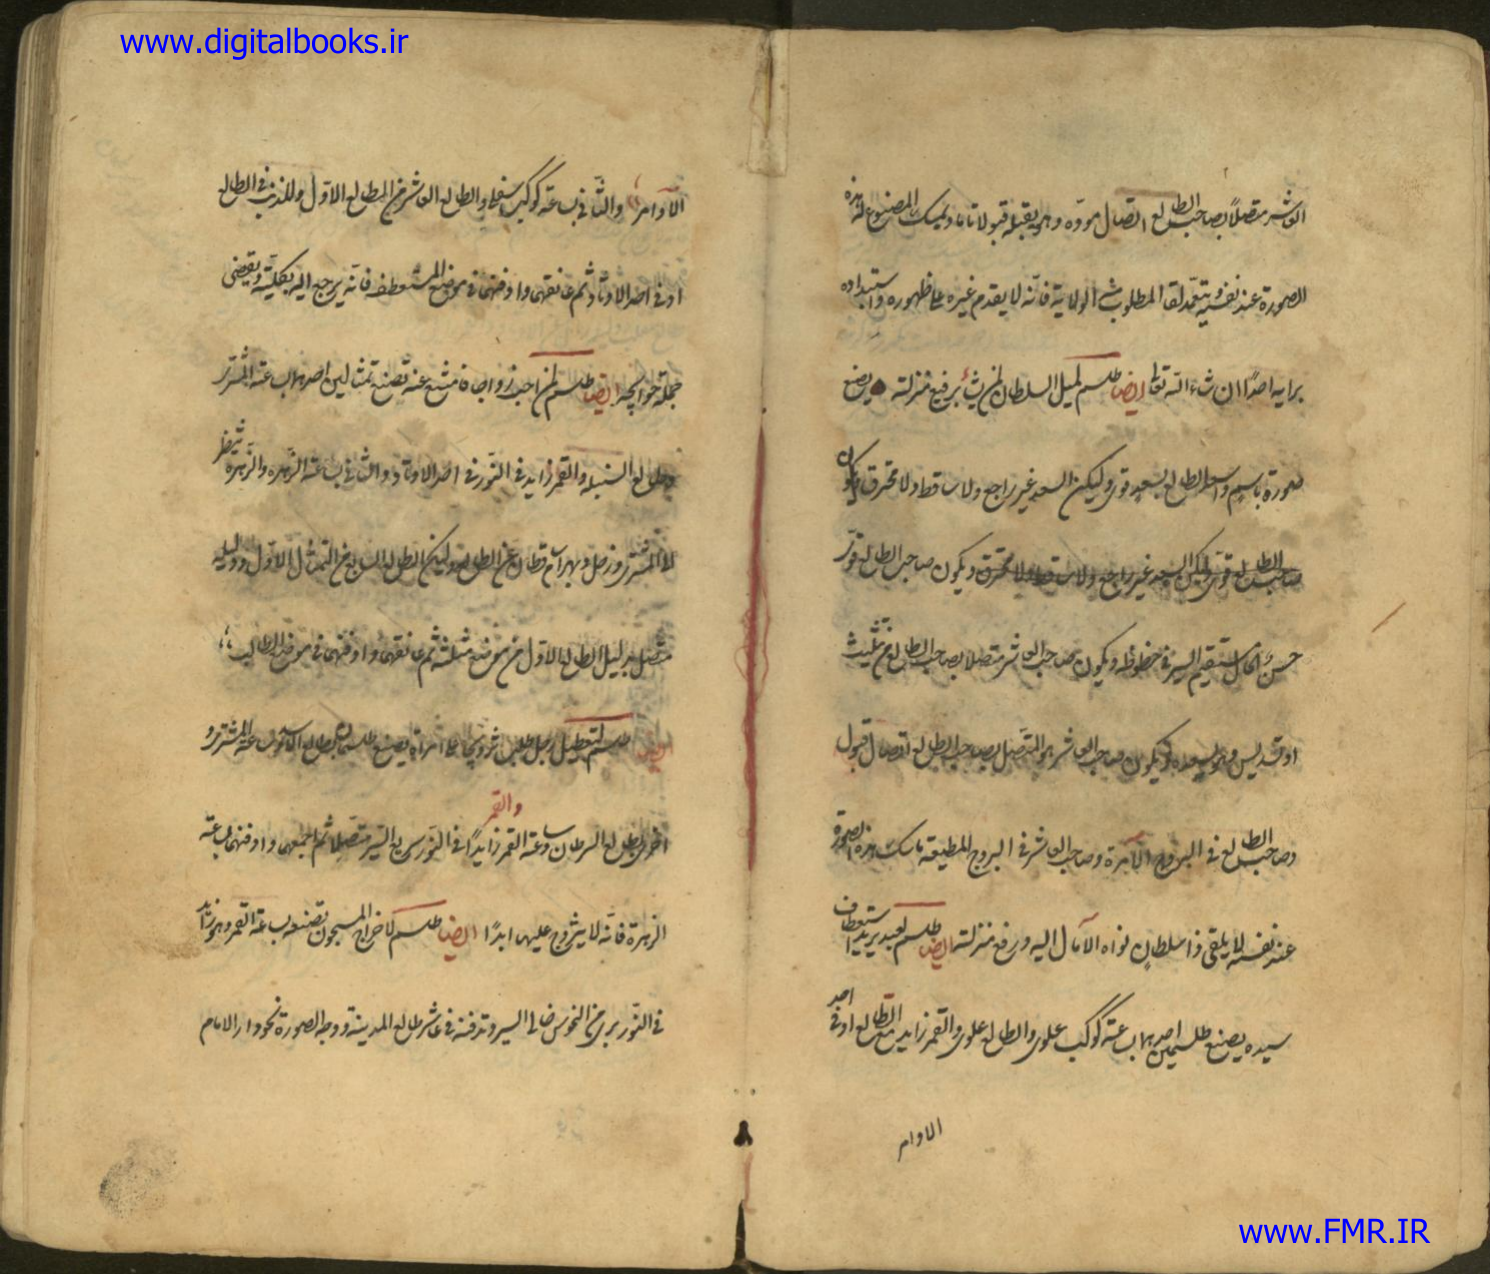 www.digitalbooks.ir
العاشر متصلاً بصاحب الطالع اتصال مودّه وهو يقبله قبولا تاما ويمسك المصنوع له هذه
الصورة عند نفسه ويتعمّد لقا المطلوب منه الولاية فانّه لا يقدم غيره على ظهوره واستبداده
برايه احدًا ان شاء الله تعالى ايضا طلسم لميل السلطان لمن يشاء برفيع منزلته يصنع
صورة باسم واسعد الطالع بسعد قوى وليكن السعد غير راجع ولا ساقط ولا محترق ويكون
صاحب الطالع قوى وليكن السعد غير راجع ولا ساقط ولا محترق ويكون صاحب الطالع قوى
حسن الحال مستقيم السير فى حظوظه ويكون صاحب العاشر متصلا بصاحب الطالع من تثليث
او تسديس وهو يسعده ويكون صاحب العاشر هو المتصل بصاحب الطالع اتصال قبول
وصاحب الطالع فى البروج الآمرة وصاحب العاشر فى البروج المطيعة ماسك هذه الصورة
عند نفسه لا يلقى ذا سلطان نواه الا مال اليه ورفع منزلته ايضا طلسم لعبد يريد استعطاف
سيده يصنع طلسمين احدهما بساعة كوكب علوى والطالع علوى والقمر زايد مع الطالع او فى احد
الاوام
الآوامر والثانى بساعة كوكب سفلى والطالع العاشر من الطالع الاوّل وللذنب فى الطالع
او فى احد الاوتاد ثم عانقهما وادفنهما فى موضع المستعطف فانّه يرجع اليه بكليته ويقضى
جملة حوايجه ايضا طلسم لمن احب زواجا فامتنع عنه تصنع تمثالين احدهما بساعة المشترى
وطالع السنبلة والقمر زايد فى النّور فى احد الاوتاد والثانى بساعة الزّهره والزّهرة تنظر
المشترى وزحل وبهرام ساقطان عن الطالع وليكن الطالع السابع من التمثال الاوّل ودليله
متصل بدليل الطالع الاول من موضع مثلثة ثم عانقهما وادفنهما فى موضع الطالب
ايضا طلسم لتعطيل رجل طلب تزويجا على امراة يصنع طلسمان بطالع بساعة المشترى و
والقمر
اخرى بطالع السرطان وساعة القمر زايدًا فى النّور سريع السّير متّصلا ثم اجمعهما وادفنهما بساعة
الزهرة فانّه لا يتزوج عليها ابدًا ايضا طلسم لاخراج المسجون تصنعه بساعة القمر وهو زايد
فى النّور برى من النحوس خالى السير وتدفنه فى عاشر طالع المدينة ووجه الصورة نحو دار الامام
www.FMR.IR